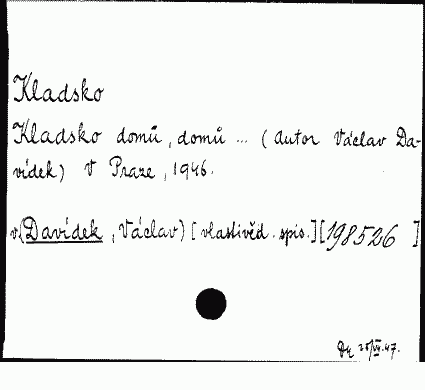 Kladsko
Kladsko domů, domů ... (autor Václav Da-
vídek) V Praze, 1946.
v. (Davídek, Václav) [vlastivěd. spis.] [198526]